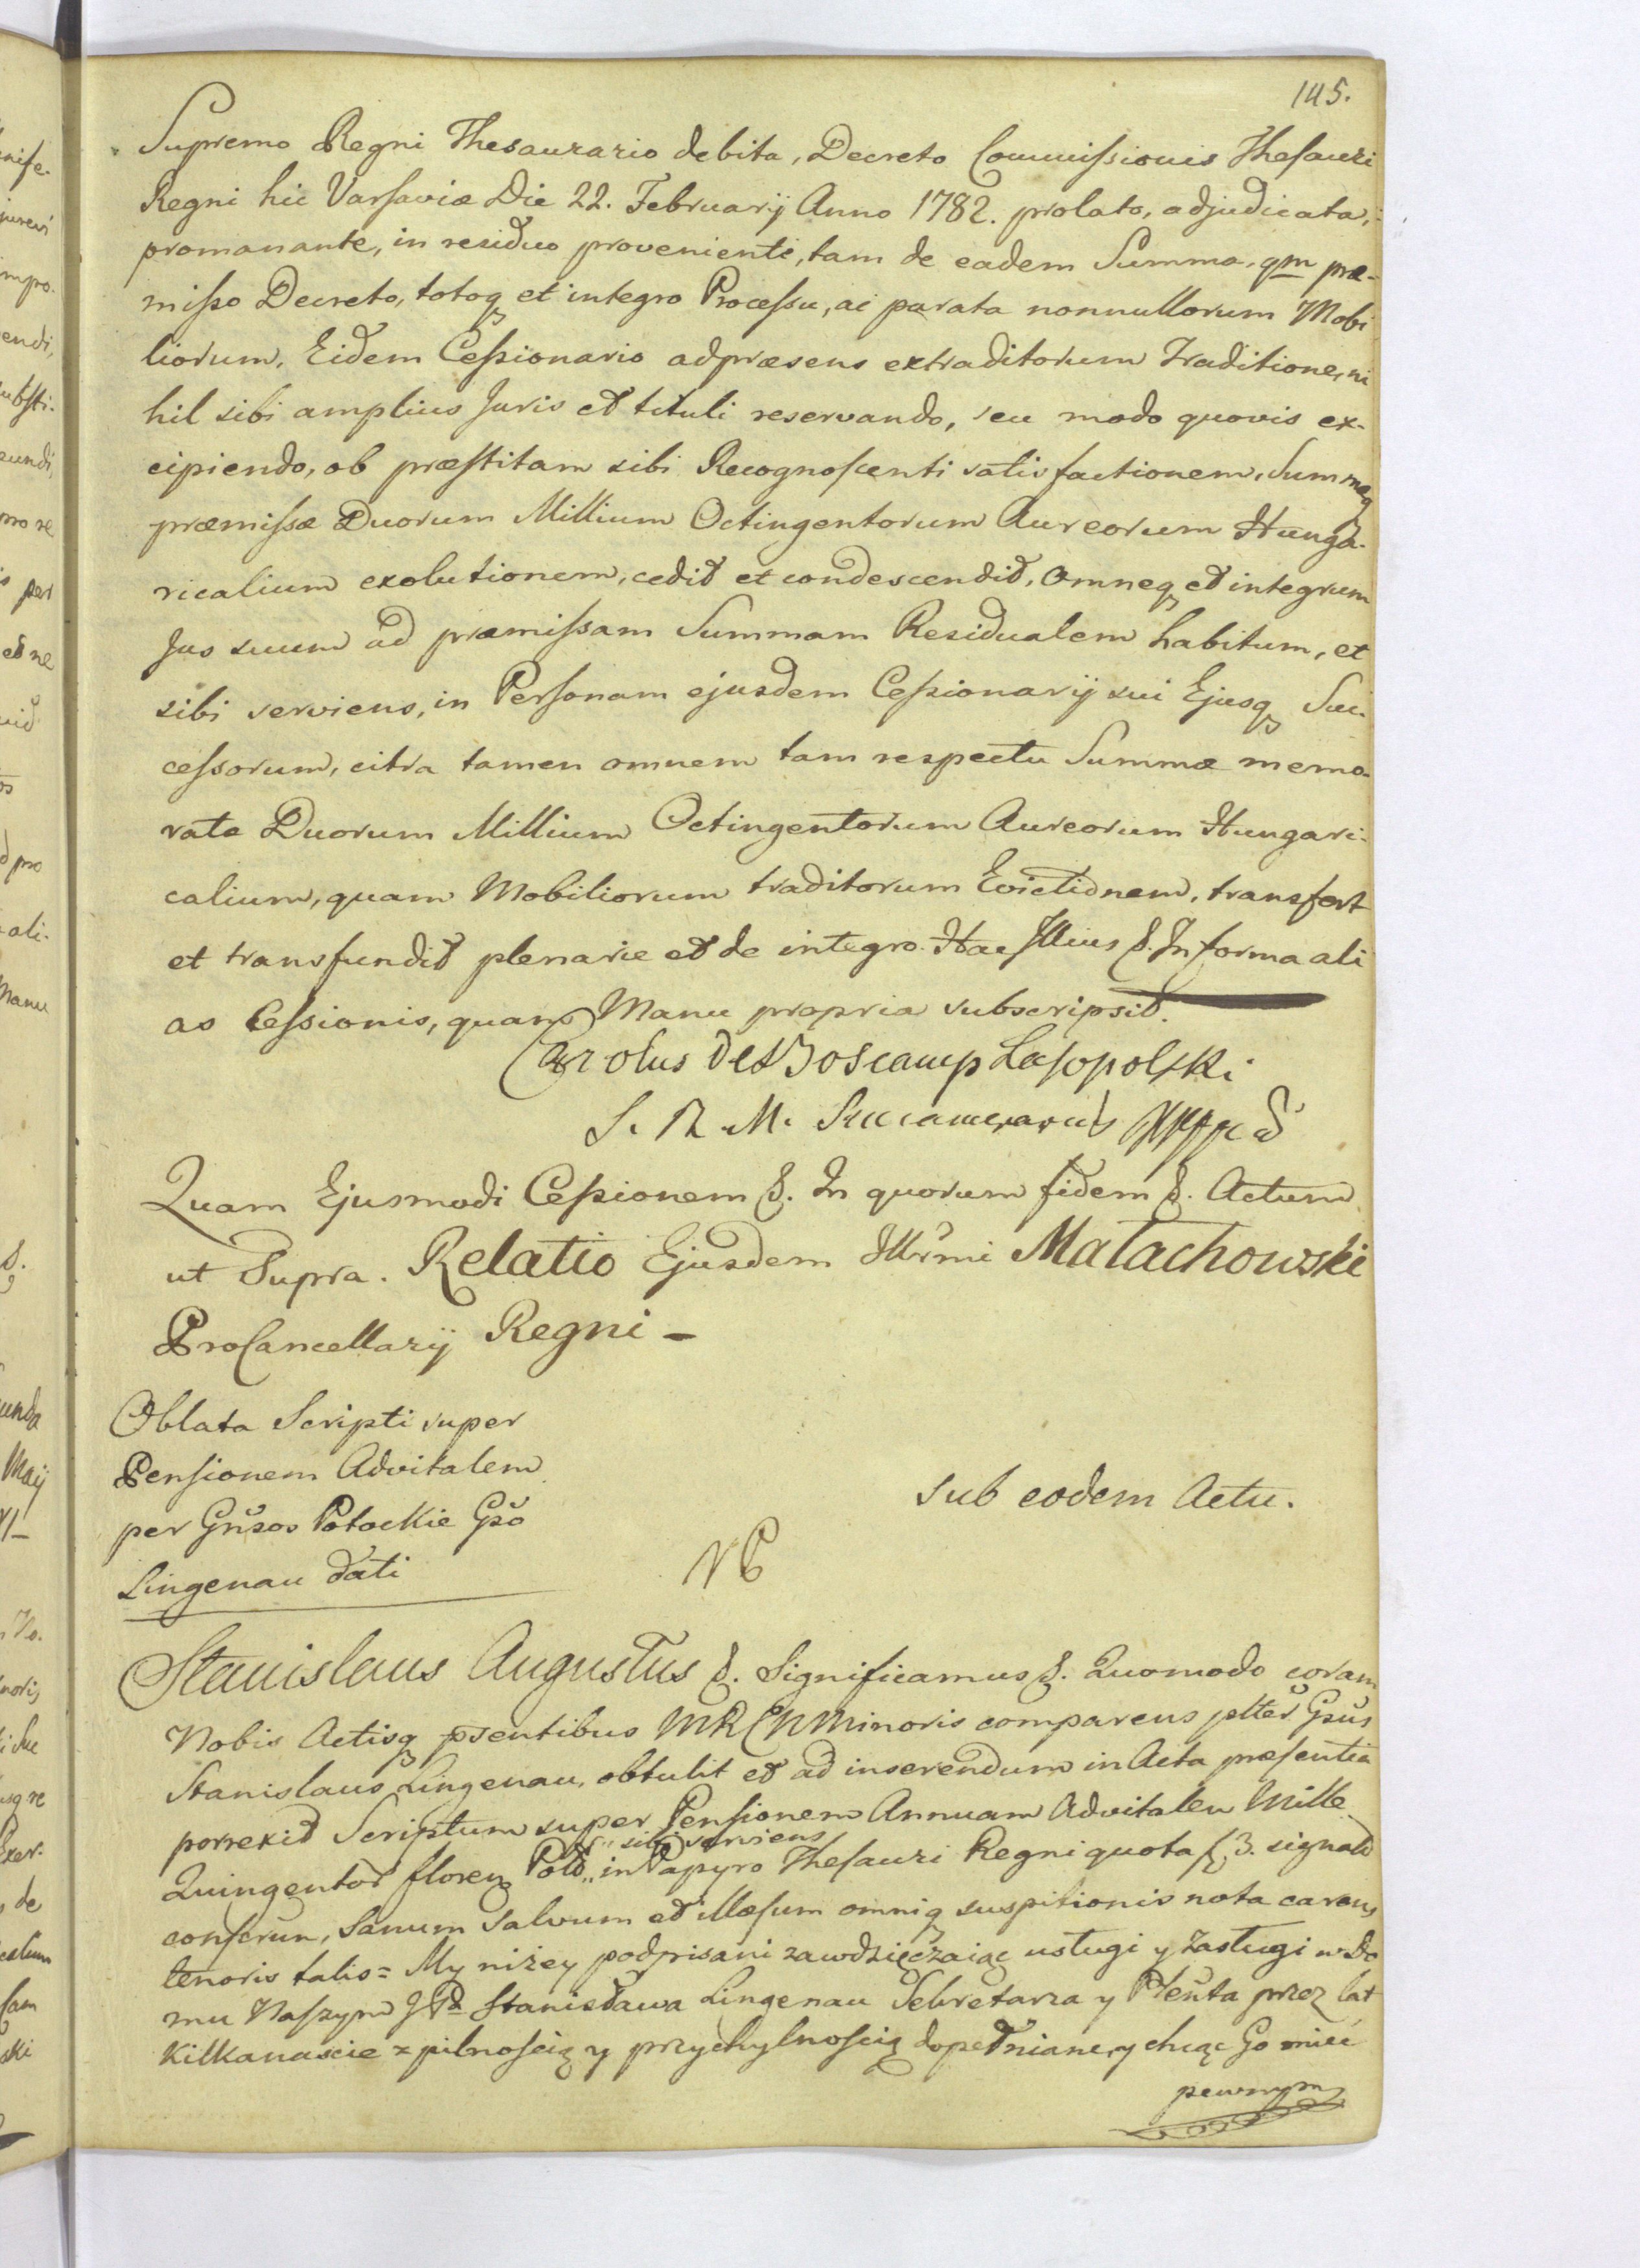 145.
Supremo Regni Thesaurario debita, Decreto Commissionis Thesauri
Regni hic Varsaviæ Die 22. Februarij Anno 1782. prolato, adjudicata,
promanante, in residuo provenienti, tam de eadem Summa, qm præ-
misso Decreto, totoq et integro Processu, ac parata nonnullorum Mobi
liorum, Eidem Cessionario adpræsens extraditorum Traditione, ni
hil sibi amplius Juris et tituli reservando, seu modo quovis ex-
cipiendo, ob præstitam sibi Recognoscenti satisfactionem, Summæq
præmissæ Duorum Millium Octingentorum Aureorum Hunga-
ricalium exolutionem, cedit et condescendit, Omneq et integrum
Jus suum ad præmissam Summam Residualem habitum, et
sibi serviens, in Personam ejusdem Cessionarij sui Ejusq Suc-
cessorum, citra tamen omnem tam respectu Summæ memo-
ratæ Duorum Millium Octingentorum Aureorum Hungari-
calium, quam Mobiliorum traditorum Evictionem, transfert
et transfundit plenarie et de integro. Hac Illius &. In forma ali
as Cessionis, quam Manu propria subscripsit.
Carolus de Boscamp Lasopolski
S. R. M. Succamerarius
Quam Ejusmodi Cessionem &. In quorum fidem &. Actum
ut Supra. Relatio Ejusdem Illrmi Małachowski
ProCancellarij Regni -
Oblata Scripti super
Pensionem Advitalem
per Gnsos Potockie Gso
Lingenau dati
sub eodem Actu.
Stanislaus Augustus &. Significamus &. Quomodo coram
Nobis Actisq psentibus MRCN Minoris comparens pltter Gsus
Stanislaus Lingenau, obtulit et ad inserendum in Acta præsentia
porrexit Scriptum super Pensionem Annuam Advitalem Mille
Quingentor florenz Pold " sibi serviens " in Papyro Thesauri Regni quota f. 3. signato
conscrun, Sanum Salvum et illæsum omniq suspitionis nota carens,
tenoris talis = My niżey podpisani zawdzięczaiąc usługi y zasługi w Do
mu Naszym JPa Stanisława Lingenau Sekretarza y Plenta przez lat
Kilkanascie z pilnoscią y przychylnoscią dopełniane, y chcąc Go mieć
pewnym